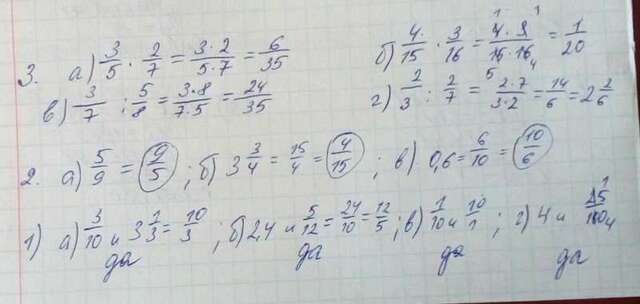 3. а) 3/5 · 2/7 = 3·2/5·7 = 6/35 б) 4/15 · 3/16 = 4·3/15·16 = 1/20
в) 3/7 : 5/8 = 3·8/7·5 = 24/35 г) 2/3 : 2/7 = 2·7/3·2 = 14/6 = 2 2/6
2. а) 5/9 = 9/5 ; б) 3 3/4 = 15/4 = 4/15 ; в) 0,6 = 6/10 = 10/6
1) а) 3/10 и 3 1/3 = 10/3 ; б) 2,4 и 5/12 = 24/10 = 12/5 ; в) 1/10 и 10/1 ; г) 4 и
да да да да